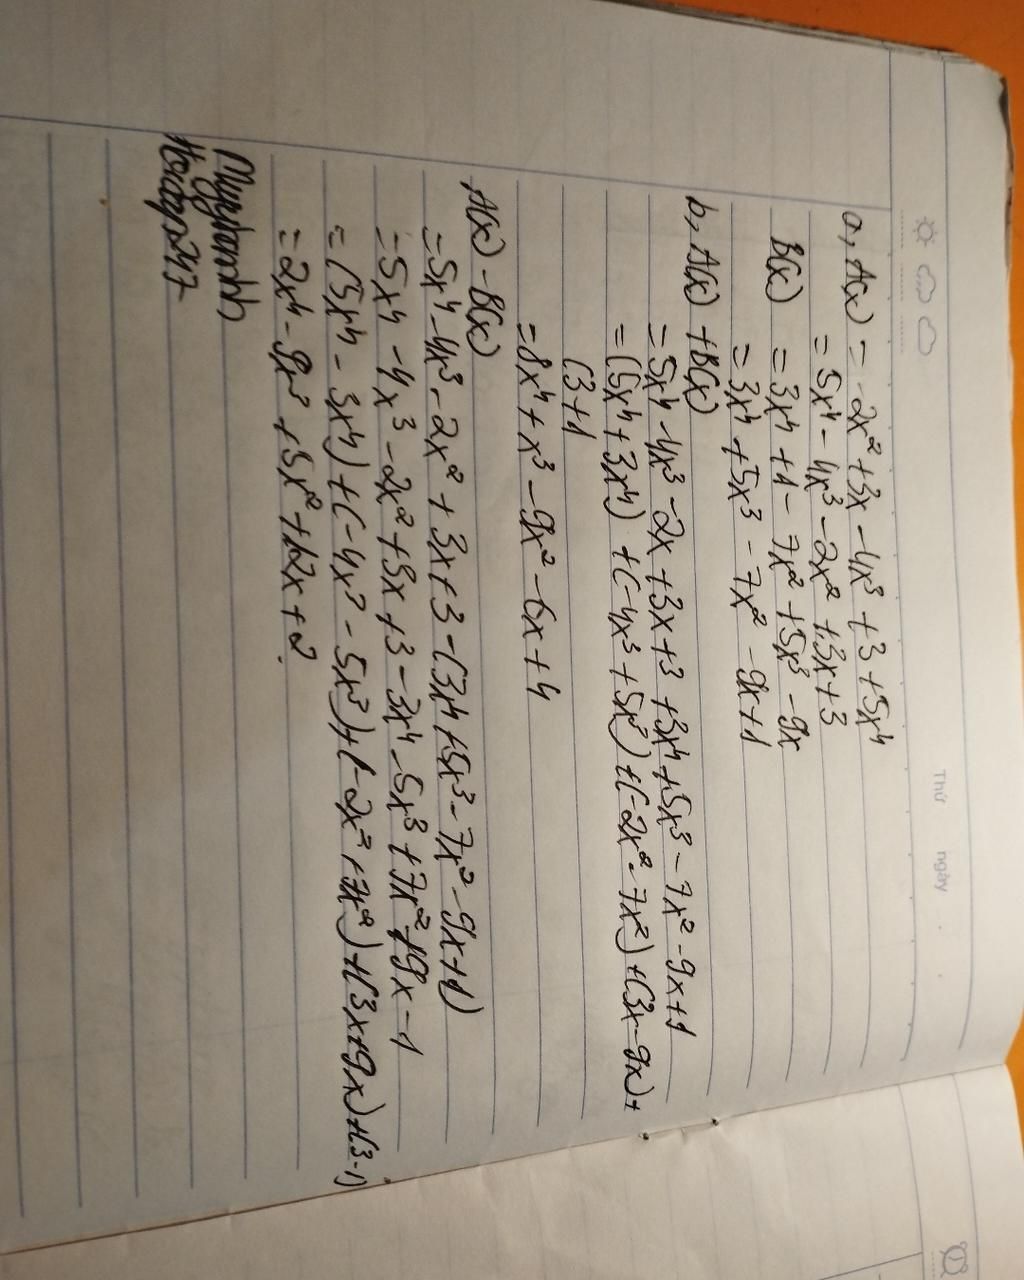 Thứ ngày
a, A(x) = -2x² + 3x - 4x³ + 3 + 5x⁴
= 5x⁴ - 4x³ - 2x² + 3x + 3
B(x) = 3x⁴ + 1 - 7x² + 5x³ - 9x
= 3x⁴ + 5x³ - 7x² - 9x + 1
b, A(x) + B(x)
= 5x⁴ - 4x³ - 2x + 3x + 3 + 3x⁴ + 5x³ - 7x² - 9x + 1
= (5x⁴ + 3x⁴) + (-4x³ + 5x³) + (-2x² - 7x²) + (3x - 9x) +
(3 + 1
= 8x⁴ + x³ - 9x² - 6x + 4
A(x) - B(x)
= 5x⁴ - 4x³ - 2x² + 3x + 3 - (3x⁴ + 5x³ - 7x² - 9x + 1)
= 5x⁴ - 4x³ - 2x² + 3x + 3 - 3x⁴ - 5x³ + 7x² + 9x - 1
= (5x⁴ - 3x⁴) + (-4x³ - 5x³) + (-2x² + 7x²) + (3x + 9x) + (3 - 1)
= 2x⁴ - 9x³ + 5x² + 12x + 2.
Hoidap247